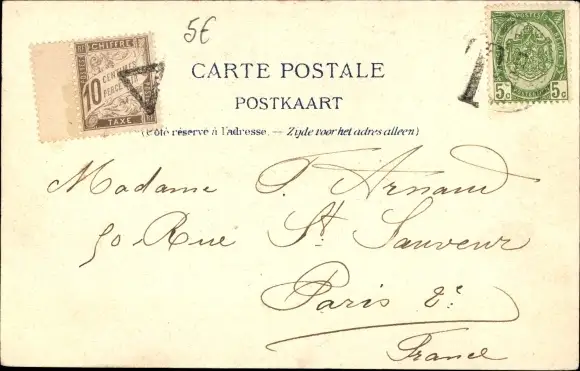 5€
CHIFFRE
10
CENTIMES
À PERCEVOIR
TAXE
T
5c 5c
CARTE POSTALE
POSTKAART
(Côté réservé à l'adresse. — Zijde voor het adres alleen)
Madame P. Arnaud
50 Rue St. Sauveur
Paris 2e
France